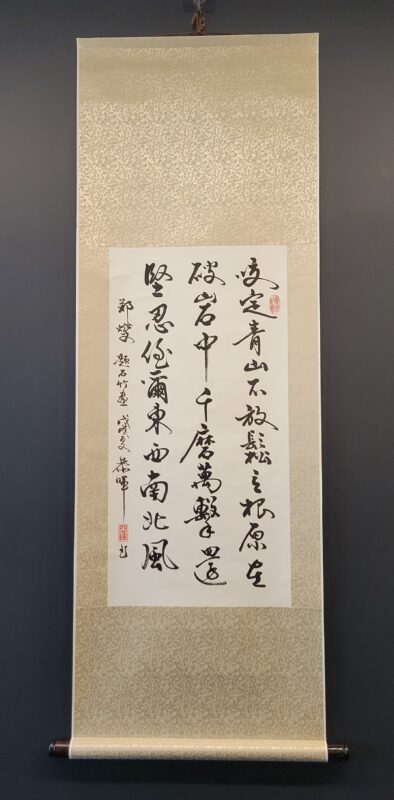 咬定青山不放鬆立根原在
破岩中千磨萬擊還
堅忍任爾東西南北風
鄭燮 題石竹畫 戊戌夏 暉 书